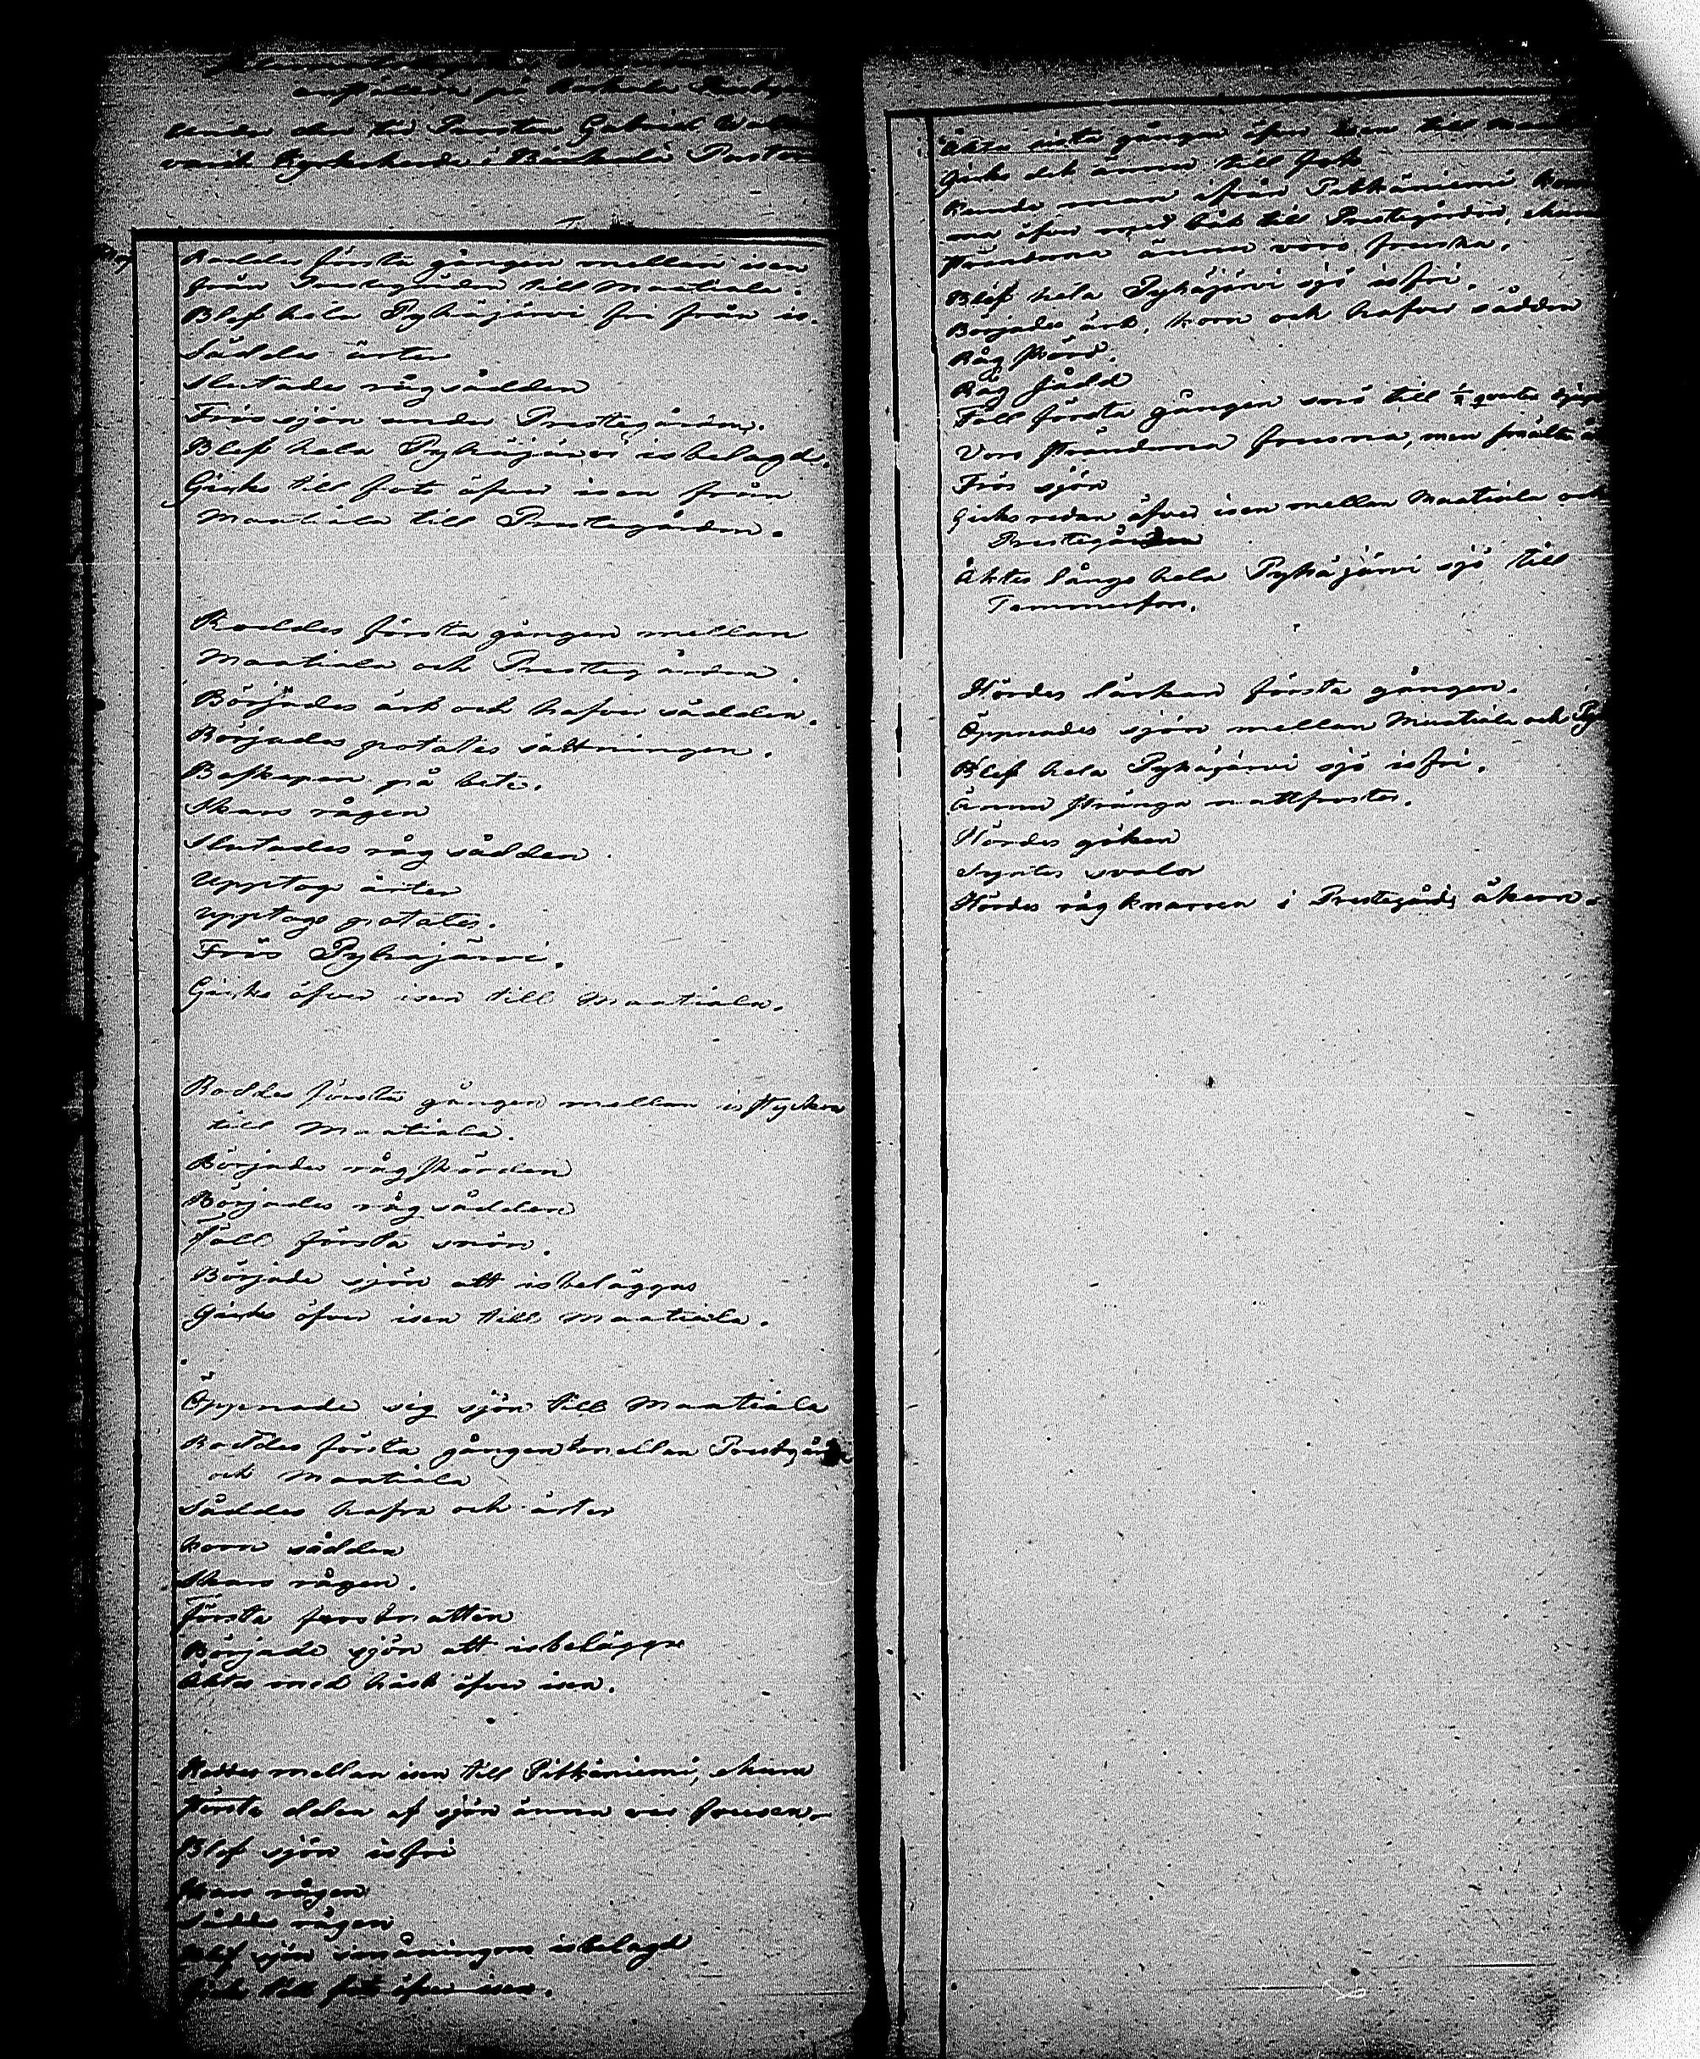 anstälda på Birkala Prestgård
under den tid Prosten Gabriel
varit Kyrkoherde i Birkala Pastorat
Roddes första gången mellan isen
från Prestegården till Maatiala.
Blef hela Pyhäjärvi fri från is.
Såddes ärter
Slutades rågsådden
Frös sjön under Prestegården.
Blef hela Pyhäjärvi isbelagd.
Gicks till fots öfver isen från
Maatiala till Prestegården.
Roddes första gången mellan
Maatiala och Prestegården.
Börjades ärt och hafver sådden.
Börjades potates sättningen.
Boskapen på bete.
Skars rågen
Slutades råg sådden.
Upptogs ärter
Upptogs potates.
Frös Pyhäjärvi.
Gicks öfver isen till Maatiala.
Roddes första gången mellan isstycken
till Maatiala.
Börjades rågskörden
Börjades rågsådden
Föll första snön.
Började sjön att isbeläggas
Gicks öfver isen till Maatiala.
Öppnade sig sjön till Maatiala
Roddes första gången mellan Prestegården
och Maatiala
Såddes hafra och ärter
Korn sådden
Skars rågen.
Första frostnatten
Började sjön att isbelägga
Åktes med häst öfver isen.
Roddes mellan isen till Pitkäniemi, ehuru
största delen af sjön ännu var frusen.
Blef sjön isfri
Skars rågen
Såddes rågen
Blef sjön småningom isbelagd
Gicks till fots öfver isen.
Åktes sista gången öfver isen till
Gicks det ännu till fots
Kunde man ifrån Pitkäniemi kom
ma öfver med båt till Prestegården, ehuru
stränderna ännu voro frusna.
Blef hela Pyhäjärvi sjö isfri.
Börjades ärt, korn och hafver sådden
Råg skörd.
Råg sådd
Föll första gången snö till 1/4 qvarters djup
Voro stränderna frusna, men
Frös sjön
Gicks redan öfver isen mellan Maatiala och
Prestegården
Åktes långs hela Pyhäjärvi sjö till
Tammerfors.
Hördes lärkan första gången.
Öppnades sjön mellan Maatiala och
Blef hela Pyhäjärvi sjö isfri.
Ännu stränga nattfroster.
Hördes göken
Syntes svalor
Hördes råg knarren i Prestegårds åkern